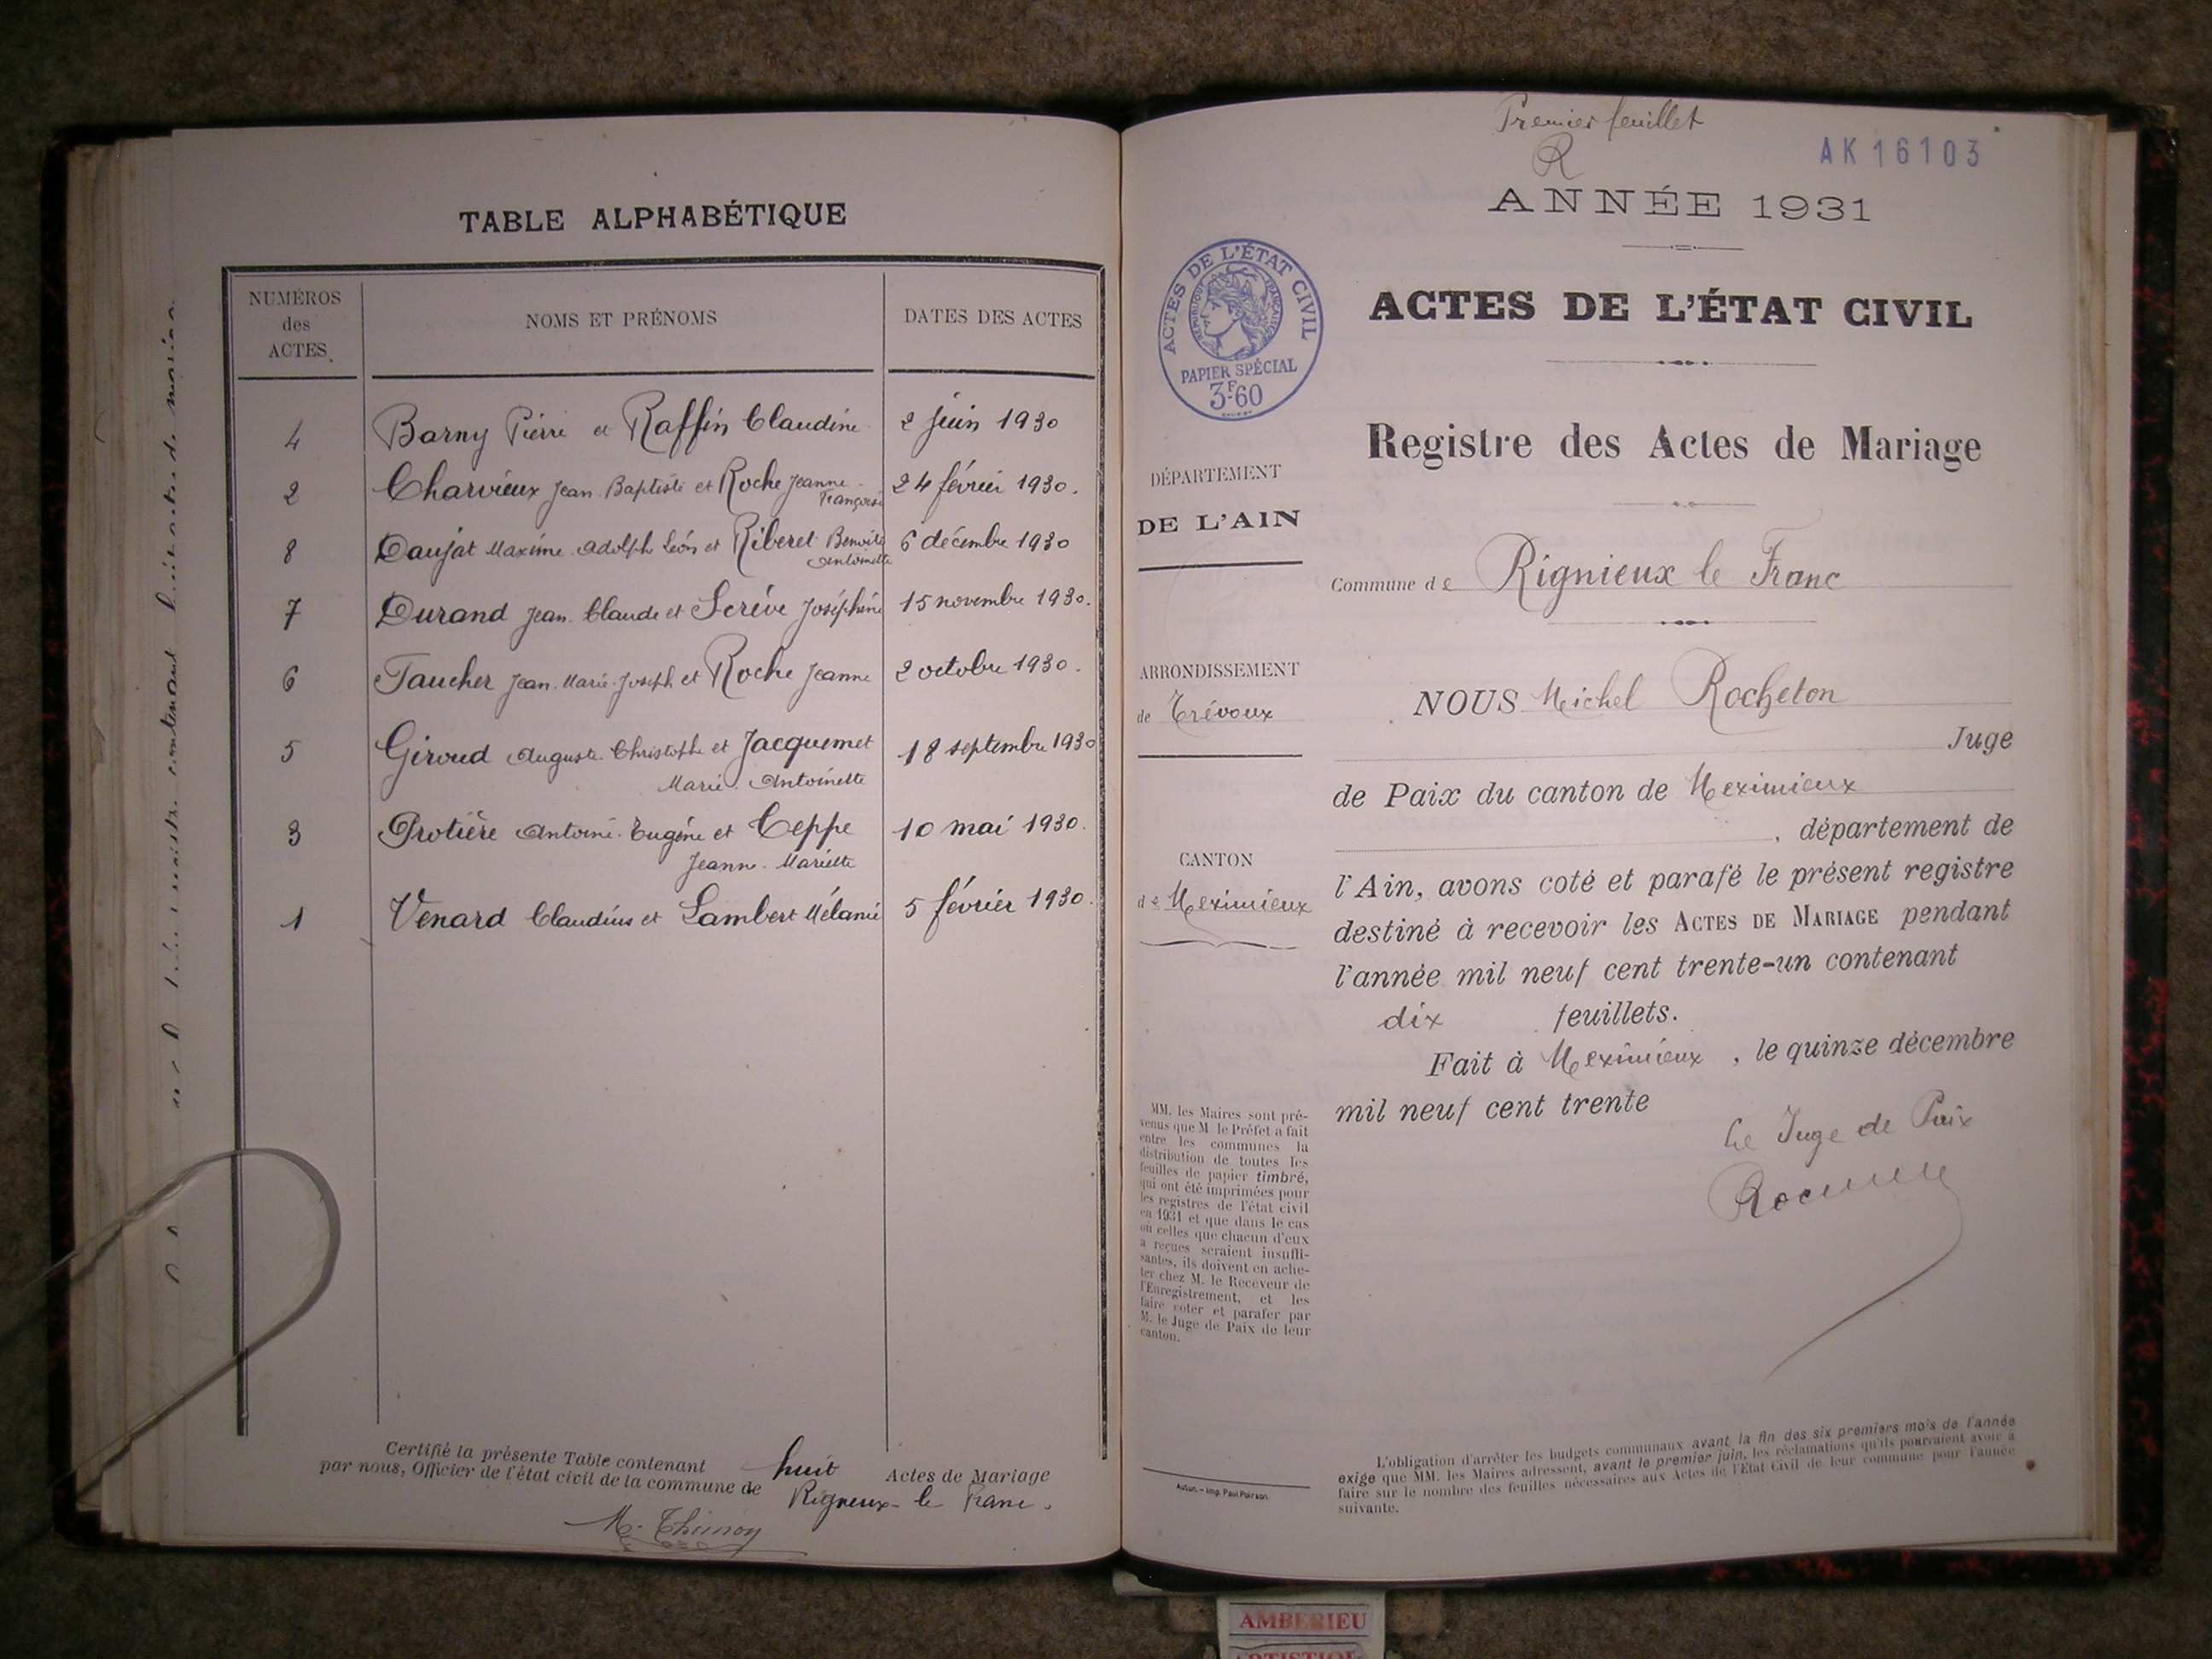 TABLE ALPHABÉTIQUE
NUMÉROS
des
ACTES.
NOMS ET PRÉNOMS
DATES DES ACTES
4 Barny Pierre et Raffin Claudine 2 juin 1930
2 Charvieux Jean Baptiste et Roche Jeanne Françoise 24 février 1930.
8 Daujat Maxime Adolph Léon et Riberet Benoite Antoinette 6 décembre 1930
7 Durand Jean Claude et Screve Joséphine 15 novembre 1930.
6 Faucher Jean Marie Joseph et Roche Jeanne 2 octobre 1930.
5 Giroud Auguste Christophe et Jacquemet 18 septembre 1930
Marie Antoinette
3 Protière Antoine Eugène et Ceppe 10 mai 1930.
Jeanne Mariette
1 Venard Claudius et Lambert Mélanie 5 février 1930.
Certifié la présente Table contenant huit Actes de Mariage
par nous, Officier de l'état civil de la commune de Rigneux-le Franc.
M. Thimon
Premier feuillet
R
AK 16103
ANNÉE 1931
ACTES DE L'ÉTAT CIVIL
RÉPUBLIQUE FRANÇAISE
PAPIER SPÉCIAL
3F60
ACTES DE L'ÉTAT CIVIL
Registre des Actes de Mariage
DÉPARTEMENT
DE L'AIN
Commune de Rignieux le Franc
ARRONDISSEMENT
de Trévoux
NOUS Michel Rocheton
Juge
de Paix du canton de Meximieux
, département de
CANTON
de Meximieux
l'Ain, avons coté et parafé le présent registre
destiné à recevoir les ACTES DE MARIAGE pendant
l'année mil neuf cent trente-un contenant
dix feuillets.
Fait à Meximieux, le quinze décembre
mil neuf cent trente
Le Juge de Paix
MM. les Maires sont pré-
venus que M. le Préfet a fait
entre les communes la
distribution de toutes les
feuilles de papier timbré,
qui ont été imprimées pour
les registres de l'état civil
en 1931 et que dans le cas
où celles que chacun d'eux
a reçues seraient insuffi-
santes, ils doivent en ache-
ter chez M. le Receveur de
l'Enregistrement, et les
faire coter et parafer par
M. le Juge de Paix de leur
canton.
Autun. — Imp. Paul Poirson
L'obligation d'arrêter les budgets communaux avant la fin des six premiers mois de l'année
exige que MM. les Maires adressent, avant le premier juin, les réclamations qu'ils pourraient avoir à
faire sur le nombre des feuilles nécessaires aux Actes de l'Etat Civil de leur commune pour l'année
suivante.
AMBERIEU